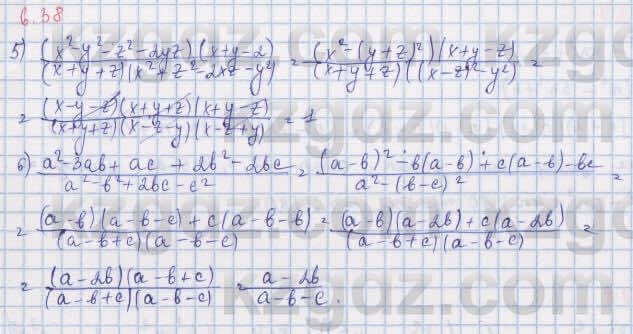 6.38
5) (x²-y²-z²-2yz)(x+y-z) / (x+y+z)(x²+z²-2xz-y²) = (x²-(y+z)²)(x+y-z) / (x+y+z)((x-z)²-y²) =
= (x-y-z)(x+y+z)(x+y-z) / (x+y+z)(x-z-y)(x-z+y) = 1
6) a²-3ab+ac+2b²-2bc / a²-b²+2bc-c² = (a-b)²-b(a-b)+c(a-b)-bc / a²-(b-c)² =
= (a-b)(a-b-c)+c(a-b-b) / (a-b+c)(a-b-c) = (a-b)(a-2b)+c(a-2b) / (a-b+c)(a-b-c) =
= (a-2b)(a-b+c) / (a-b+c)(a-b-c) = a-2b / a-b-c.
kzgdz.com